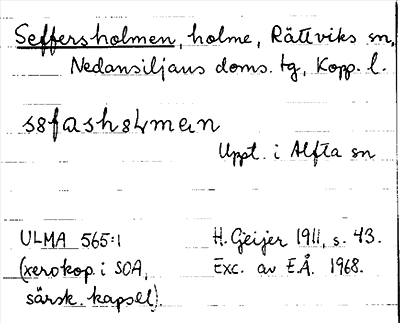 Seffersholmen, holme, Rättviks sn,
Nedansiljans doms. tg, Kopp. l.
Uppt. i Alfta sn
ULMA 565:1 H. Geijer 1911, s. 43.
(xerokop. i SOA, Exc. av E.Å. 1968.
särsk. kapsel).